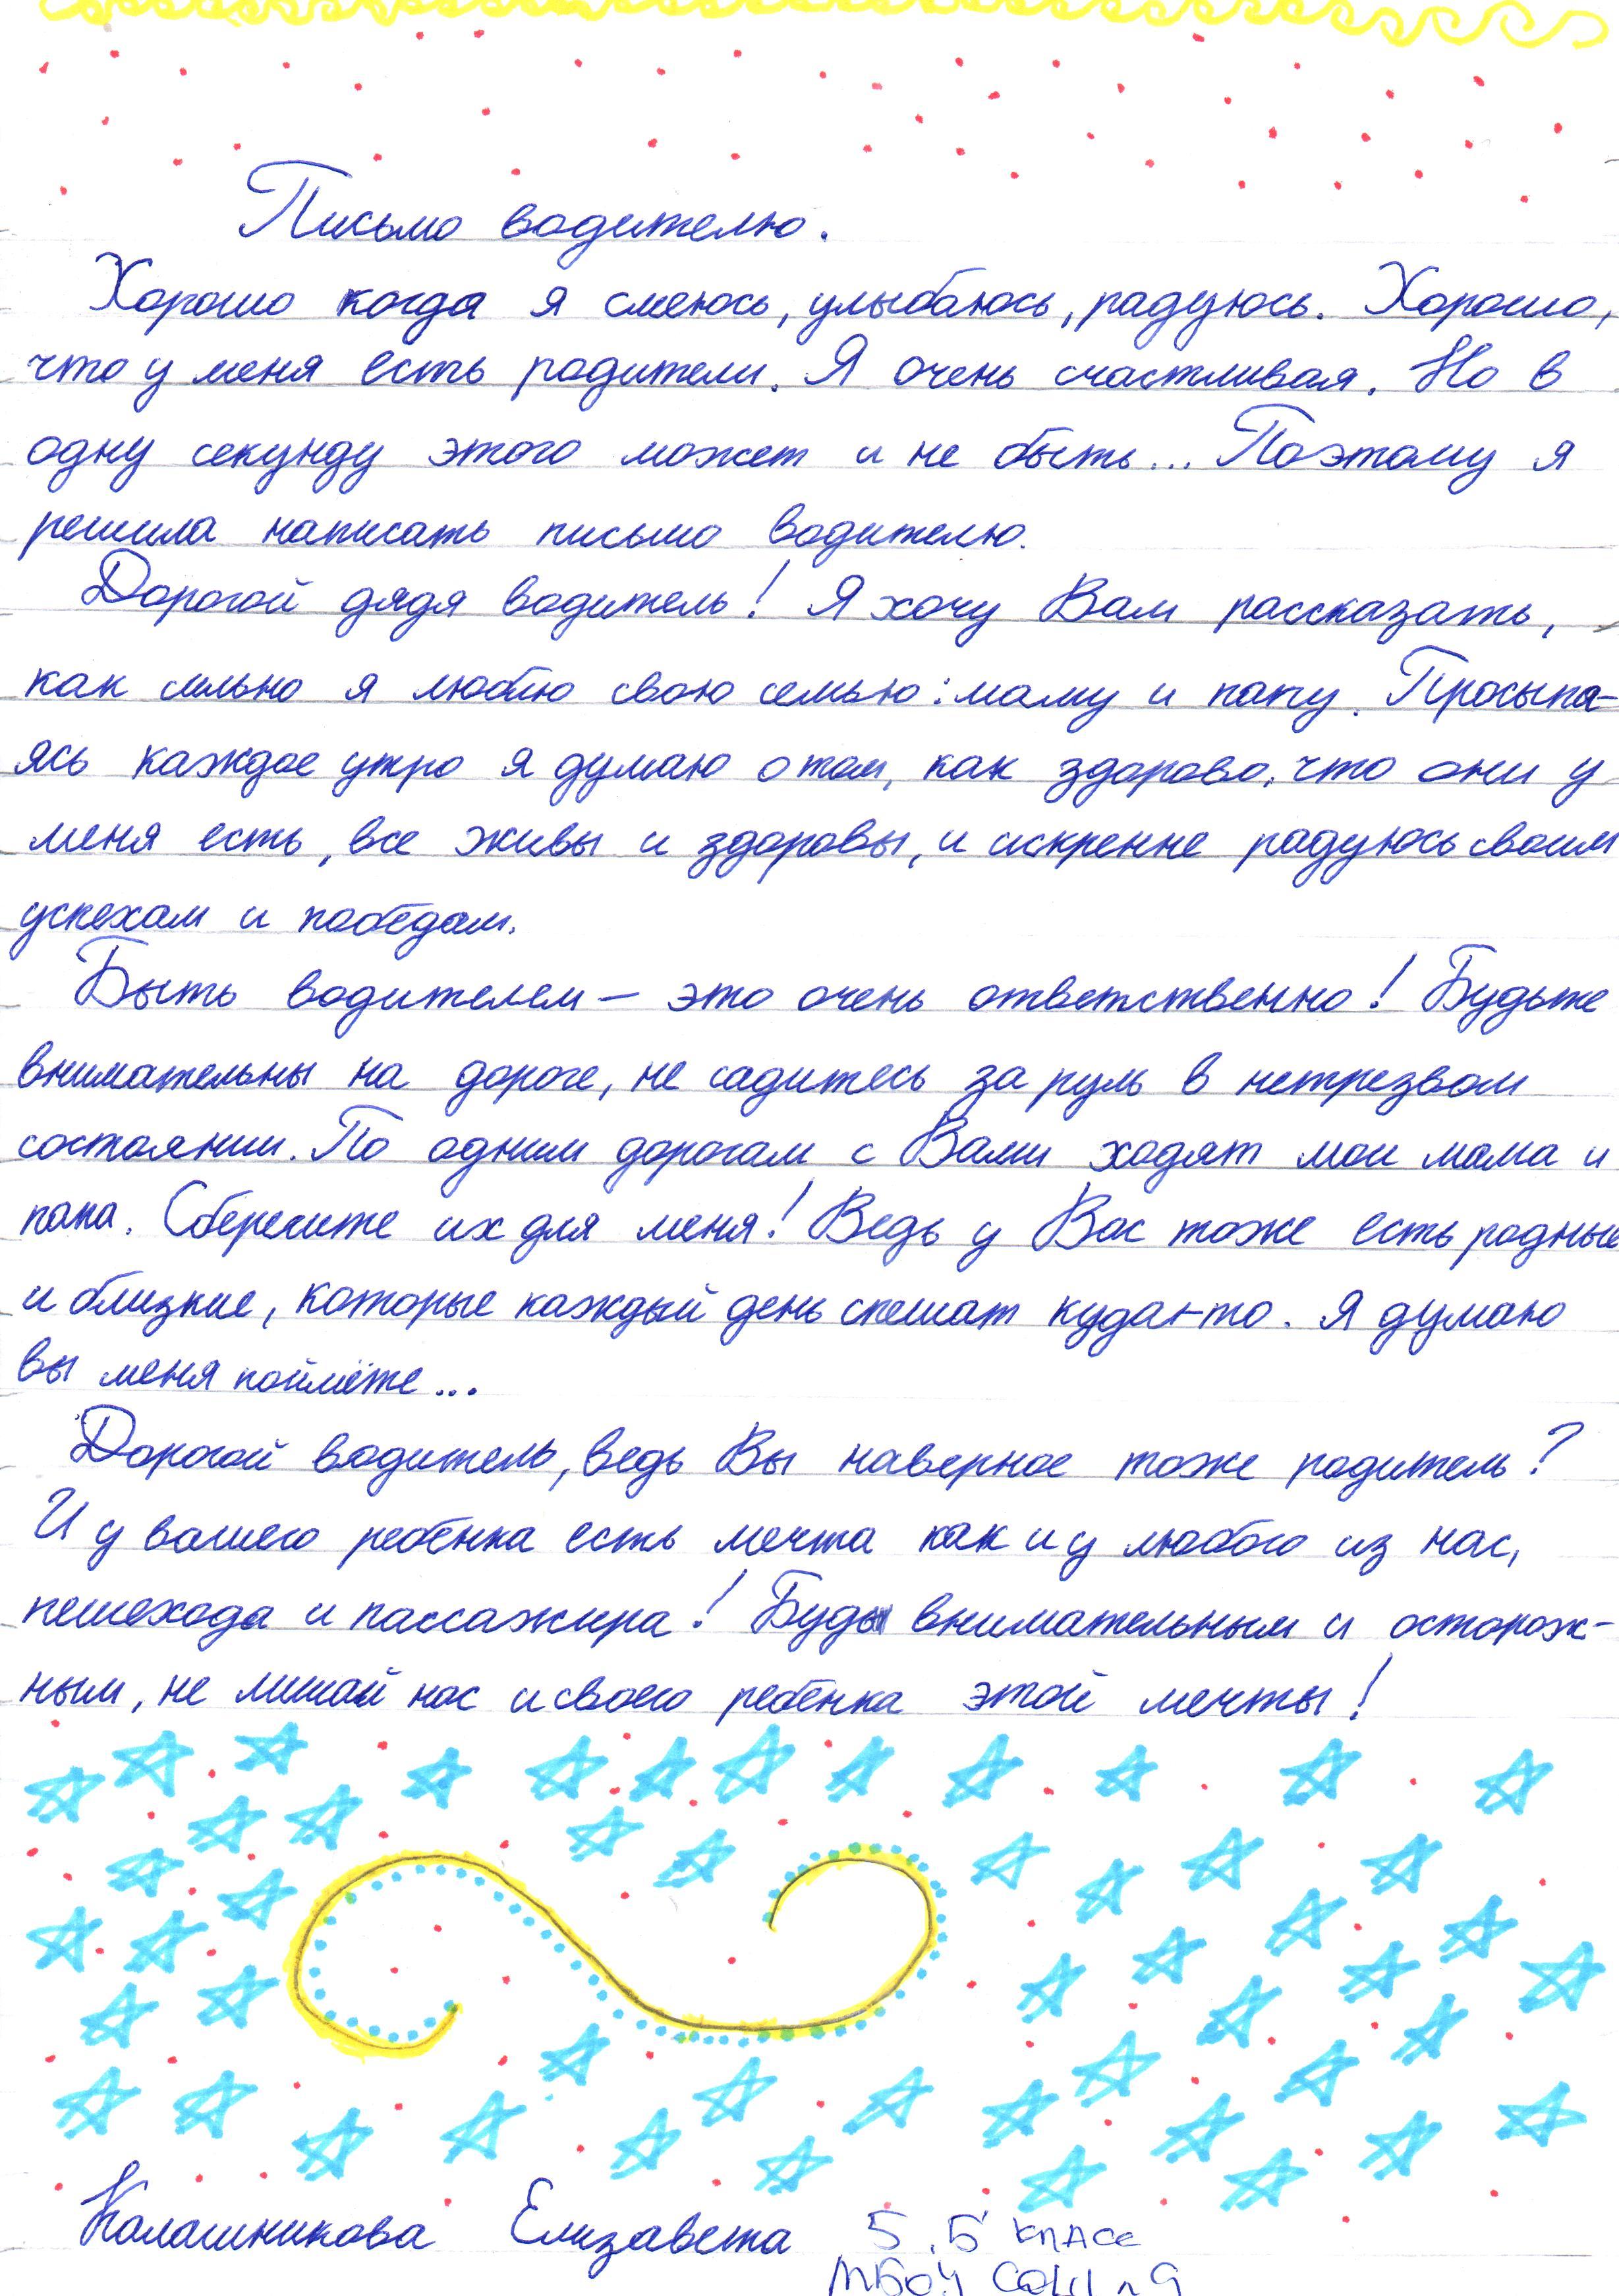 Письмо водителю.
Хорошо когда я смеюсь, улыбаюсь, радуюсь. Хорошо,
что у меня есть родители. Я очень счастливая. Но в
одну секунду этого может и не быть... Поэтому я
решила написать письмо водителю.
Дорогой дядя водитель! Я хочу Вам рассказать,
как сильно я люблю свою семью: маму и папу. Просыпа-
ясь каждое утро я думаю о том, как здорово, что они у
меня есть, все живы и здоровы, и искренне радуюсь своим
успехам и победам.
Быть водителем — это очень ответственно! Будьте
внимательны на дороге, не садитесь за руль в нетрезвом
состоянии. По одним дорогам с Вами ходят мои мама и
папа. Сберегите их для меня! Ведь у Вас тоже есть родные
и близкие, которые каждый день спешат куда-то. Я думаю
вы меня поймёте...
Дорогой водитель, ведь Вы наверное тоже родитель?
И у вашего ребёнка есть мечта как и у любого из нас,
пешехода и пассажира! Будь внимательным и осторож-
ным, не лишай нас и своего ребёнка этой мечты!
Калашникова Елизавета 5 „Б" класс
МБОУ СОШ 9